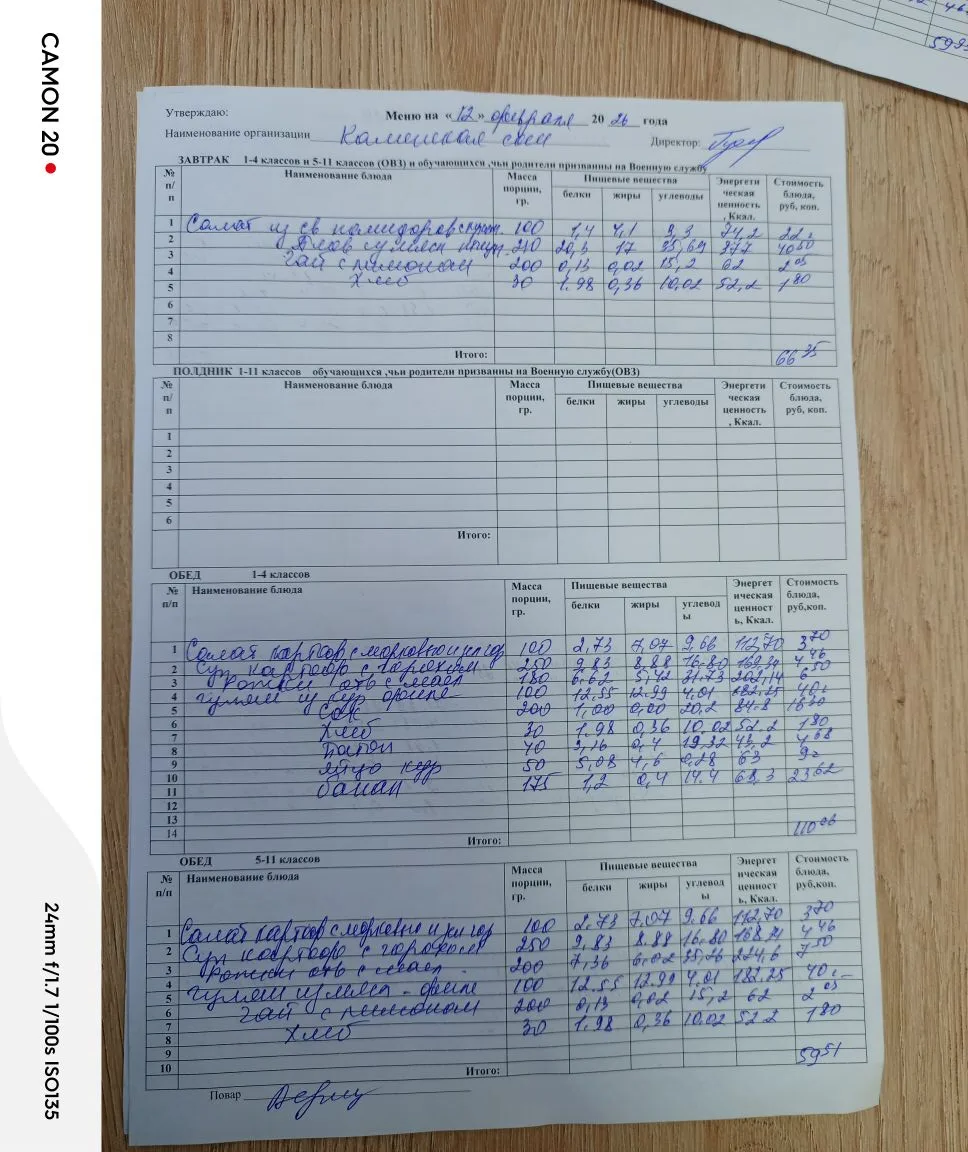 CAMON 20
24mm f/1.7 1/100s ISO135
599
Утверждаю:
Меню на «12» февраля 2026 года
Наименование организации Каменская сош Директор:
ЗАВТРАК 1-4 классов и 5-11 классов (ОВЗ) и обучающихся ,чьи родители призванны на Военную службу
№ п/п Наименование блюда Масса порции, гр. Пищевые вещества Энергети ческая ценность , Ккал. Стоимость блюда, руб, коп.
белки жиры углеводы
1 Салат из св помидоров 100 1,4 7,1 9,3 74,2 22
2 Плов с мясом 210 20,3 17 35,69 377 40 50
3 Чай с лимоном 200 0,13 0,02 15,2 62 2 05
4 Хлеб 30 1.98 0,36 10,02 52,2 1 80
5
6
7
8
Итого: 66 35
ПОЛДНИК 1-11 классов обучающихся ,чьи родители призванны на Военную службу(ОВЗ)
№ п/п Наименование блюда Масса порции, гр. Пищевые вещества Энергети ческая ценность , Ккал. Стоимость блюда, руб, коп.
белки жиры углеводы
1
2
3
4
5
6
Итого:
ОБЕД 1-4 классов
№ п/п Наименование блюда Масса порции, гр. Пищевые вещества Энергет ическая ценност ь, Ккал. Стоимость блюда, руб,коп.
белки жиры углевод ы
1 Салат картоф с морковью и 100 2,73 7,07 9.66 112,70 3 70
2 Суп картоф с горохом 250 9.83 8.88 16.80 4 46
3 Рожки отв с масл 180 6.62 5,42 31.73 202,14 6 50
4 Гуляш из кур филе 100 12.55 12.99 4,01 182,25 40
5 Сок 200 1,00 0,00 20,2 84.8
6 Хлеб 30 1.98 0,36 10.02 52.2 1 80
7 Батон 40 3,16 0,4 19,32 4 68
8 Яйцо кур 50 5,08 4,6 0,28 63
9 банан 175 1,2 0,4 14.4 68,3 23 62
10
11
12
13
14
Итого: 110 06
ОБЕД 5-11 классов
№ п/п Наименование блюда Масса порции, гр. Пищевые вещества Энергет ическая ценност ь, Ккал. Стоимость блюда, руб,коп.
белки жиры углевод ы
1 Салат картоф с морковью и 100 2,73 7,07 9.66 112,70 3 70
2 Суп картоф с горохом 250 9.83 8.88 16.80 4 46
3 Рожки отв с масл 200 7,36 6.02 35,26 224,6 7 50
4 Гуляш из мяса - филе 100 12.55 12.99 4,01 182.25 40
5 Чай с лимоном 200 0,13 0,02 15,2 62 2 05
6 Хлеб 30 1.98 0,36 10.02 52.2 1 80
7
8
9
10
Итого: 59 51
Повар